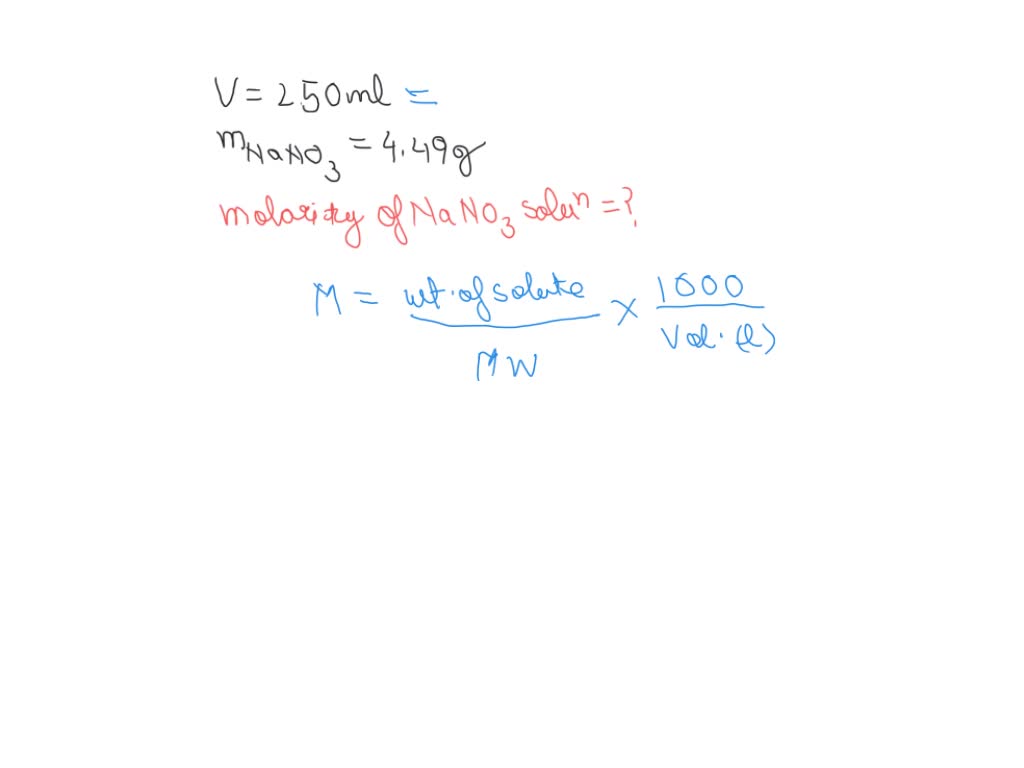 V = 250ml =
mNaNO3 = 4.49g
molarity of NaNO3 soluⁿ = ?
M = wt. of solute / MW × 1000 / Vol. (l)